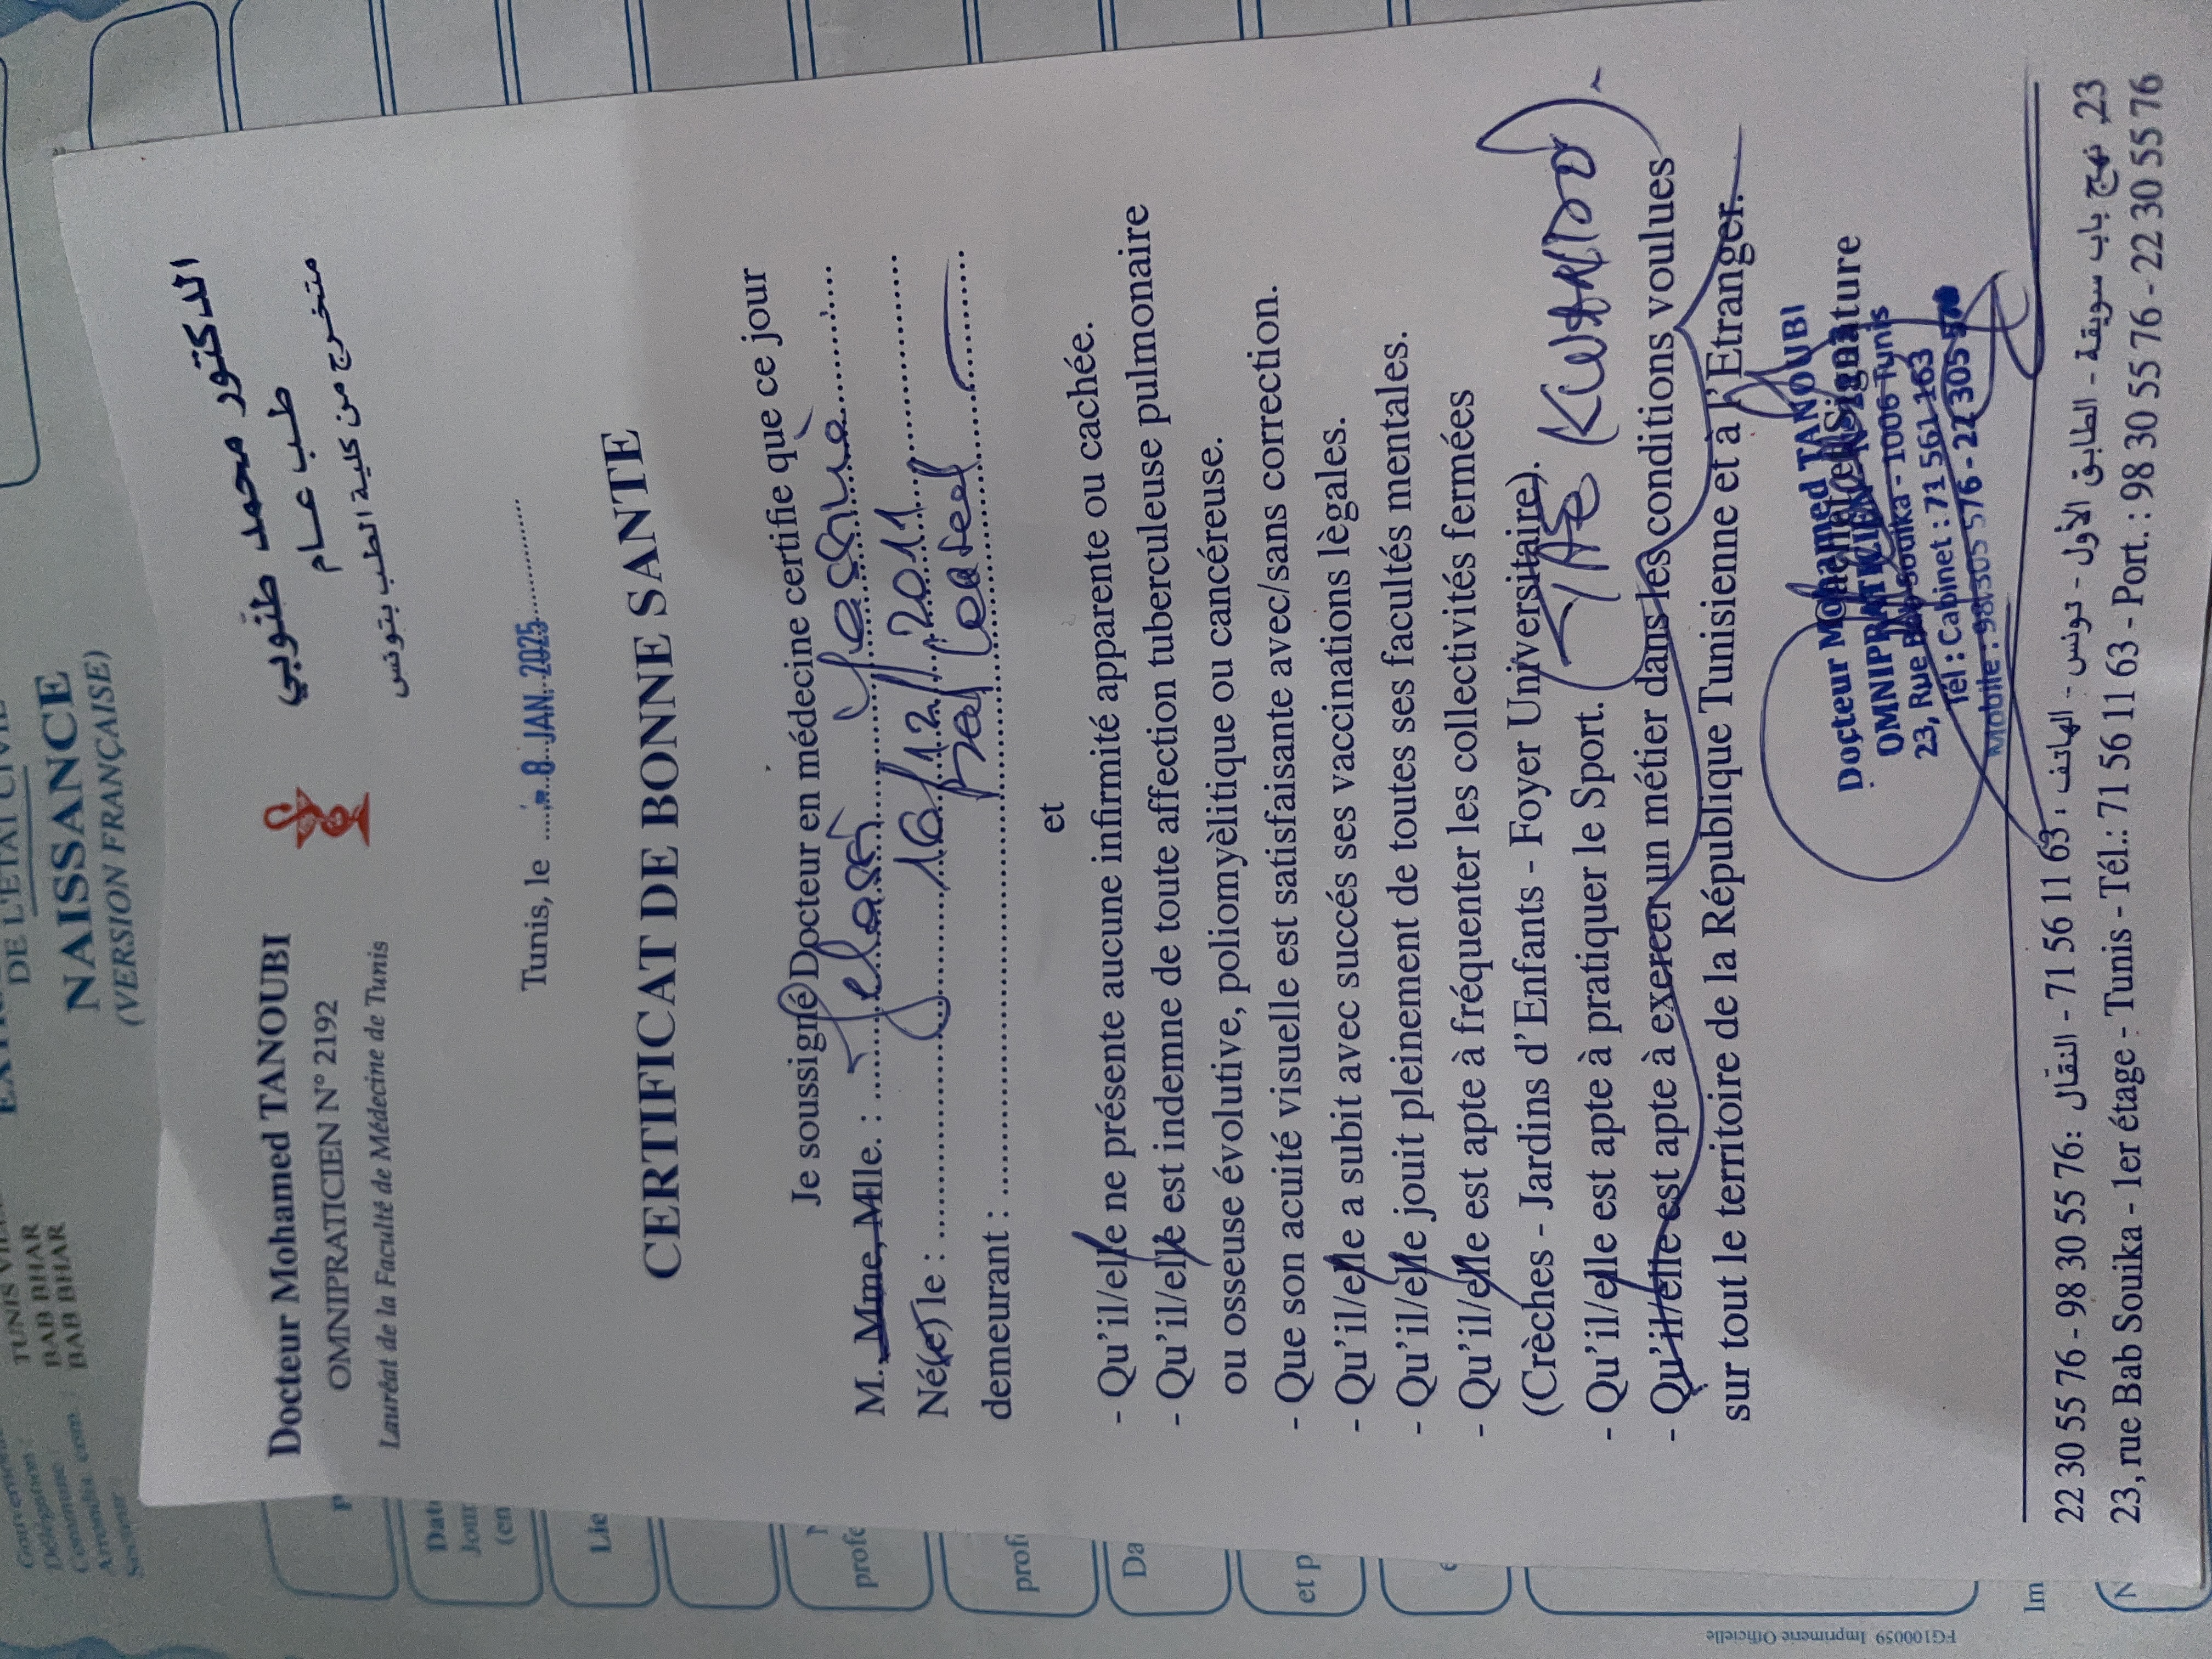 DE L'ETAT CIVIL
NAISSANCE
(VERSION FRANÇAISE)
Gouvernement
Délégation :
Commune
Secteur
TUNIS
BAB BHAR
BAB BHAR
Docteur Mohamed TANOUBI
OMNIPRATICIEN N° 2192
Lauréat de la Faculté de Médecine de Tunis
الدكتور محمد طنوبي
طب عام
متخرج من كلية الطب بتونس
Tunis, le 8 JAN. 2025
CERTIFICAT DE BONNE SANTE
Je soussigné Docteur en médecine certifie que ce jour
M. Mme, Mlle. :
Né(e) le : 16/12/2011
demeurant :
et
- Qu'il/elle ne présente aucune infirmité apparente ou cachée.
- Qu'il/elle est indemne de toute affection tuberculeuse pulmonaire
ou osseuse évolutive, poliomyèlitique ou cancéreuse.
- Que son acuité visuelle est satisfaisante avec/sans correction.
- Qu'il/elle a subit avec succés ses vaccinations lègales.
- Qu'il/elle jouit pleinement de toutes ses facultés mentales.
- Qu'il/elle est apte à fréquenter les collectivités fermées
(Crèches - Jardins d'Enfants - Foyer Universitaire).
- Qu'il/elle est apte à pratiquer le Sport.
- Qu'il/elle est apte à exercer un métier dans les conditions voulues
sur tout le territoire de la République Tunisienne et à l'Etranger.
Signature
Docteur Mohamed TANOUBI
OMNIPRATICIEN
23, Rue Bab Souika - 1006 Tunis
Tél : Cabinet : 71 561 163
Mobile : 98 305 576 - 22 305 576
23، نهج باب سويقة - الطابق الأول - تونس - الهاتف : 63 11 56 71 - النقال : 76 55 30 98 - 76 55 30 22
23, rue Bab Souika - 1er étage - Tunis - Tél.: 71 56 11 63 - Port. : 98 30 55 76 - 22 30 55 76
FG100059 Imprimerie Officielle